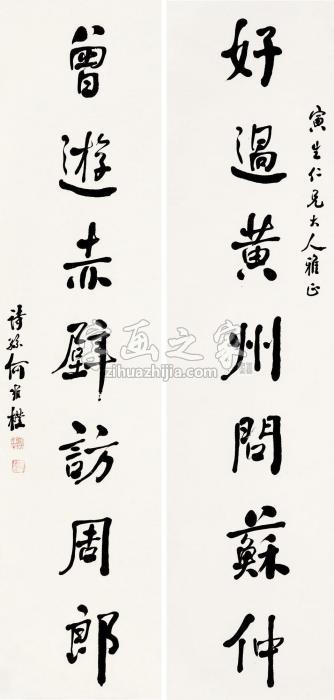 寅生仁兄大人雅正
好過黃州問蘇仲
曾遊赤壁訪周郎
詩孫何維樸
字画之家
zihuazhijia.com